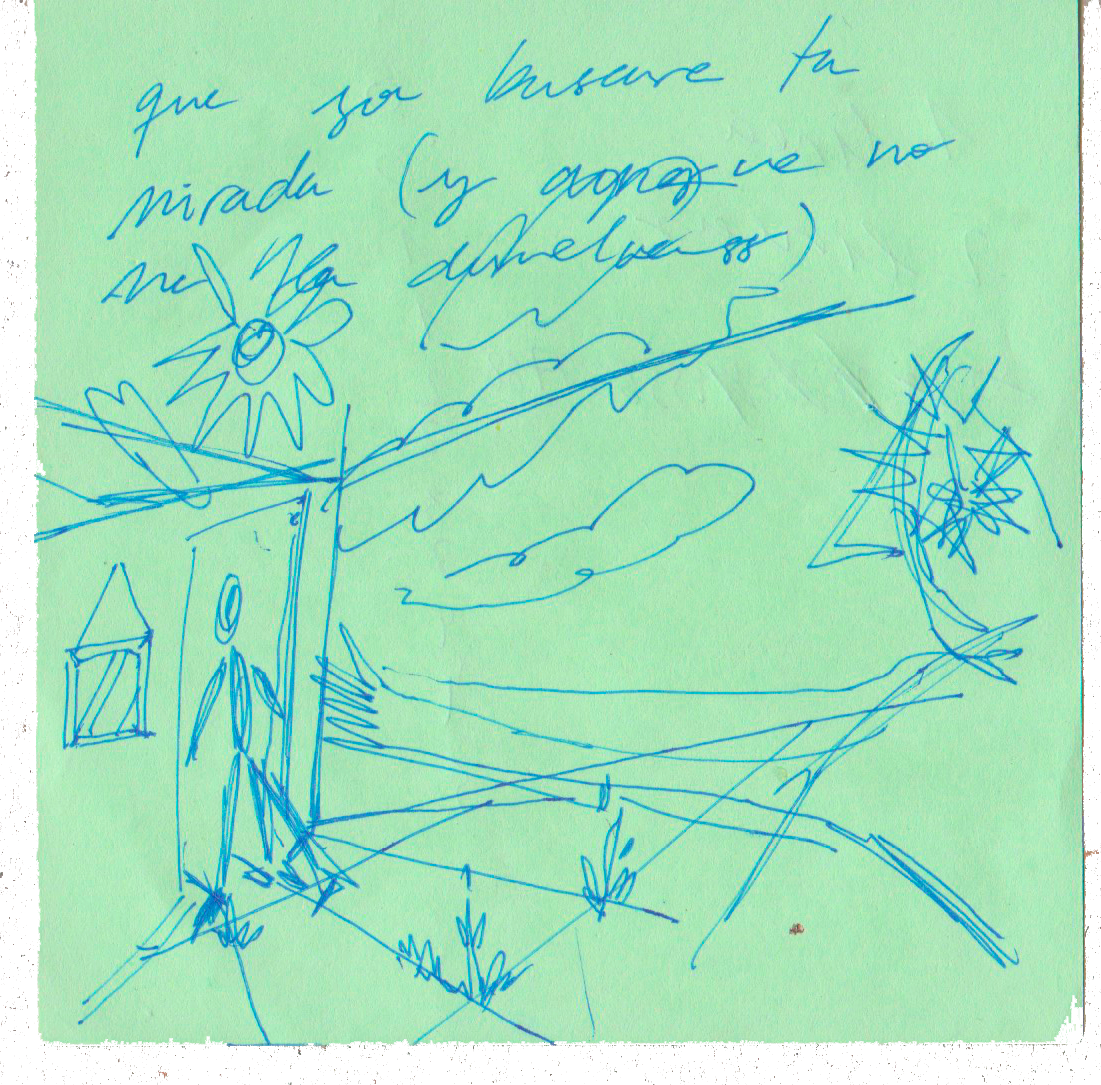 que yo buscare tu
mirada (y aunque no
me la devuelvas)